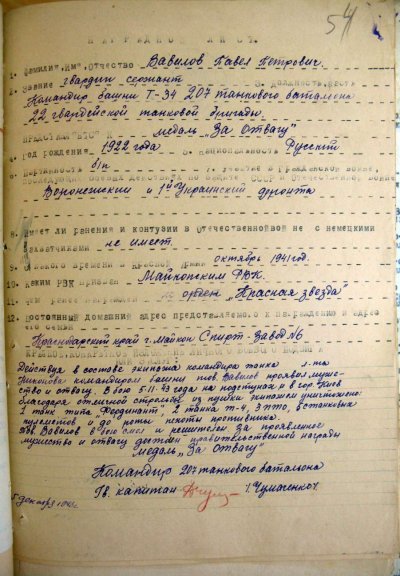 54
НАГРАДНОЙ ЛИСТ.
1. Фамилия, Имя, Отчество Вавилов Павел Петрович.
2. Звание гвардии сержант 3. Должность, часть
Командир башни Т-34 207 танкового баталиона
22 гвардейской танковой бригады.
медаль "За Отвагу"
4. Год рождения 1922 года 5. национальность Русский
6. партийность б/п 7. Участие в гражданской войне,
последующих боевых действиях по защите СССР и отечественной войне
Воронежский и 1й Украинский фронта
8. Имеет ли ранения и контузии в отечественной войне с немецкими
захватчиками не имеет.
9. С какого времени в красной армии октябрь 1941 год.
10. каким РВК призван Майкопским РВК.
11. чем ранее награжден орден "Красная звезда"
12. постоянный домашний адрес представляемого к награждению и адрес
его семьи
Краснодарский край г. Майкоп Спирт-Завод №6
Действуя в составе экипажа командира танка л-та
Никонова командиром башни тов. Вавилов проявил муже-
ство и отвагу. В бою 5.11.43 года на подступах и в гор. Киев
благодаря отличной стрельбе из пушки экипажем уничтожено:
1 танк типа "Фердинант", 2 танка Т-4, 3 ПТО, 8 станковых
пулеметов и до роты пехоты противника.
Тов. Вавилов в бою смел и решителен за проявленное
мужество и отвагу достоин правительственной награды
медаль "За Отвагу"
Командир 207 танкового баталиона
Гв. капитан /Чумаченко/.
5 декабря 1943г.